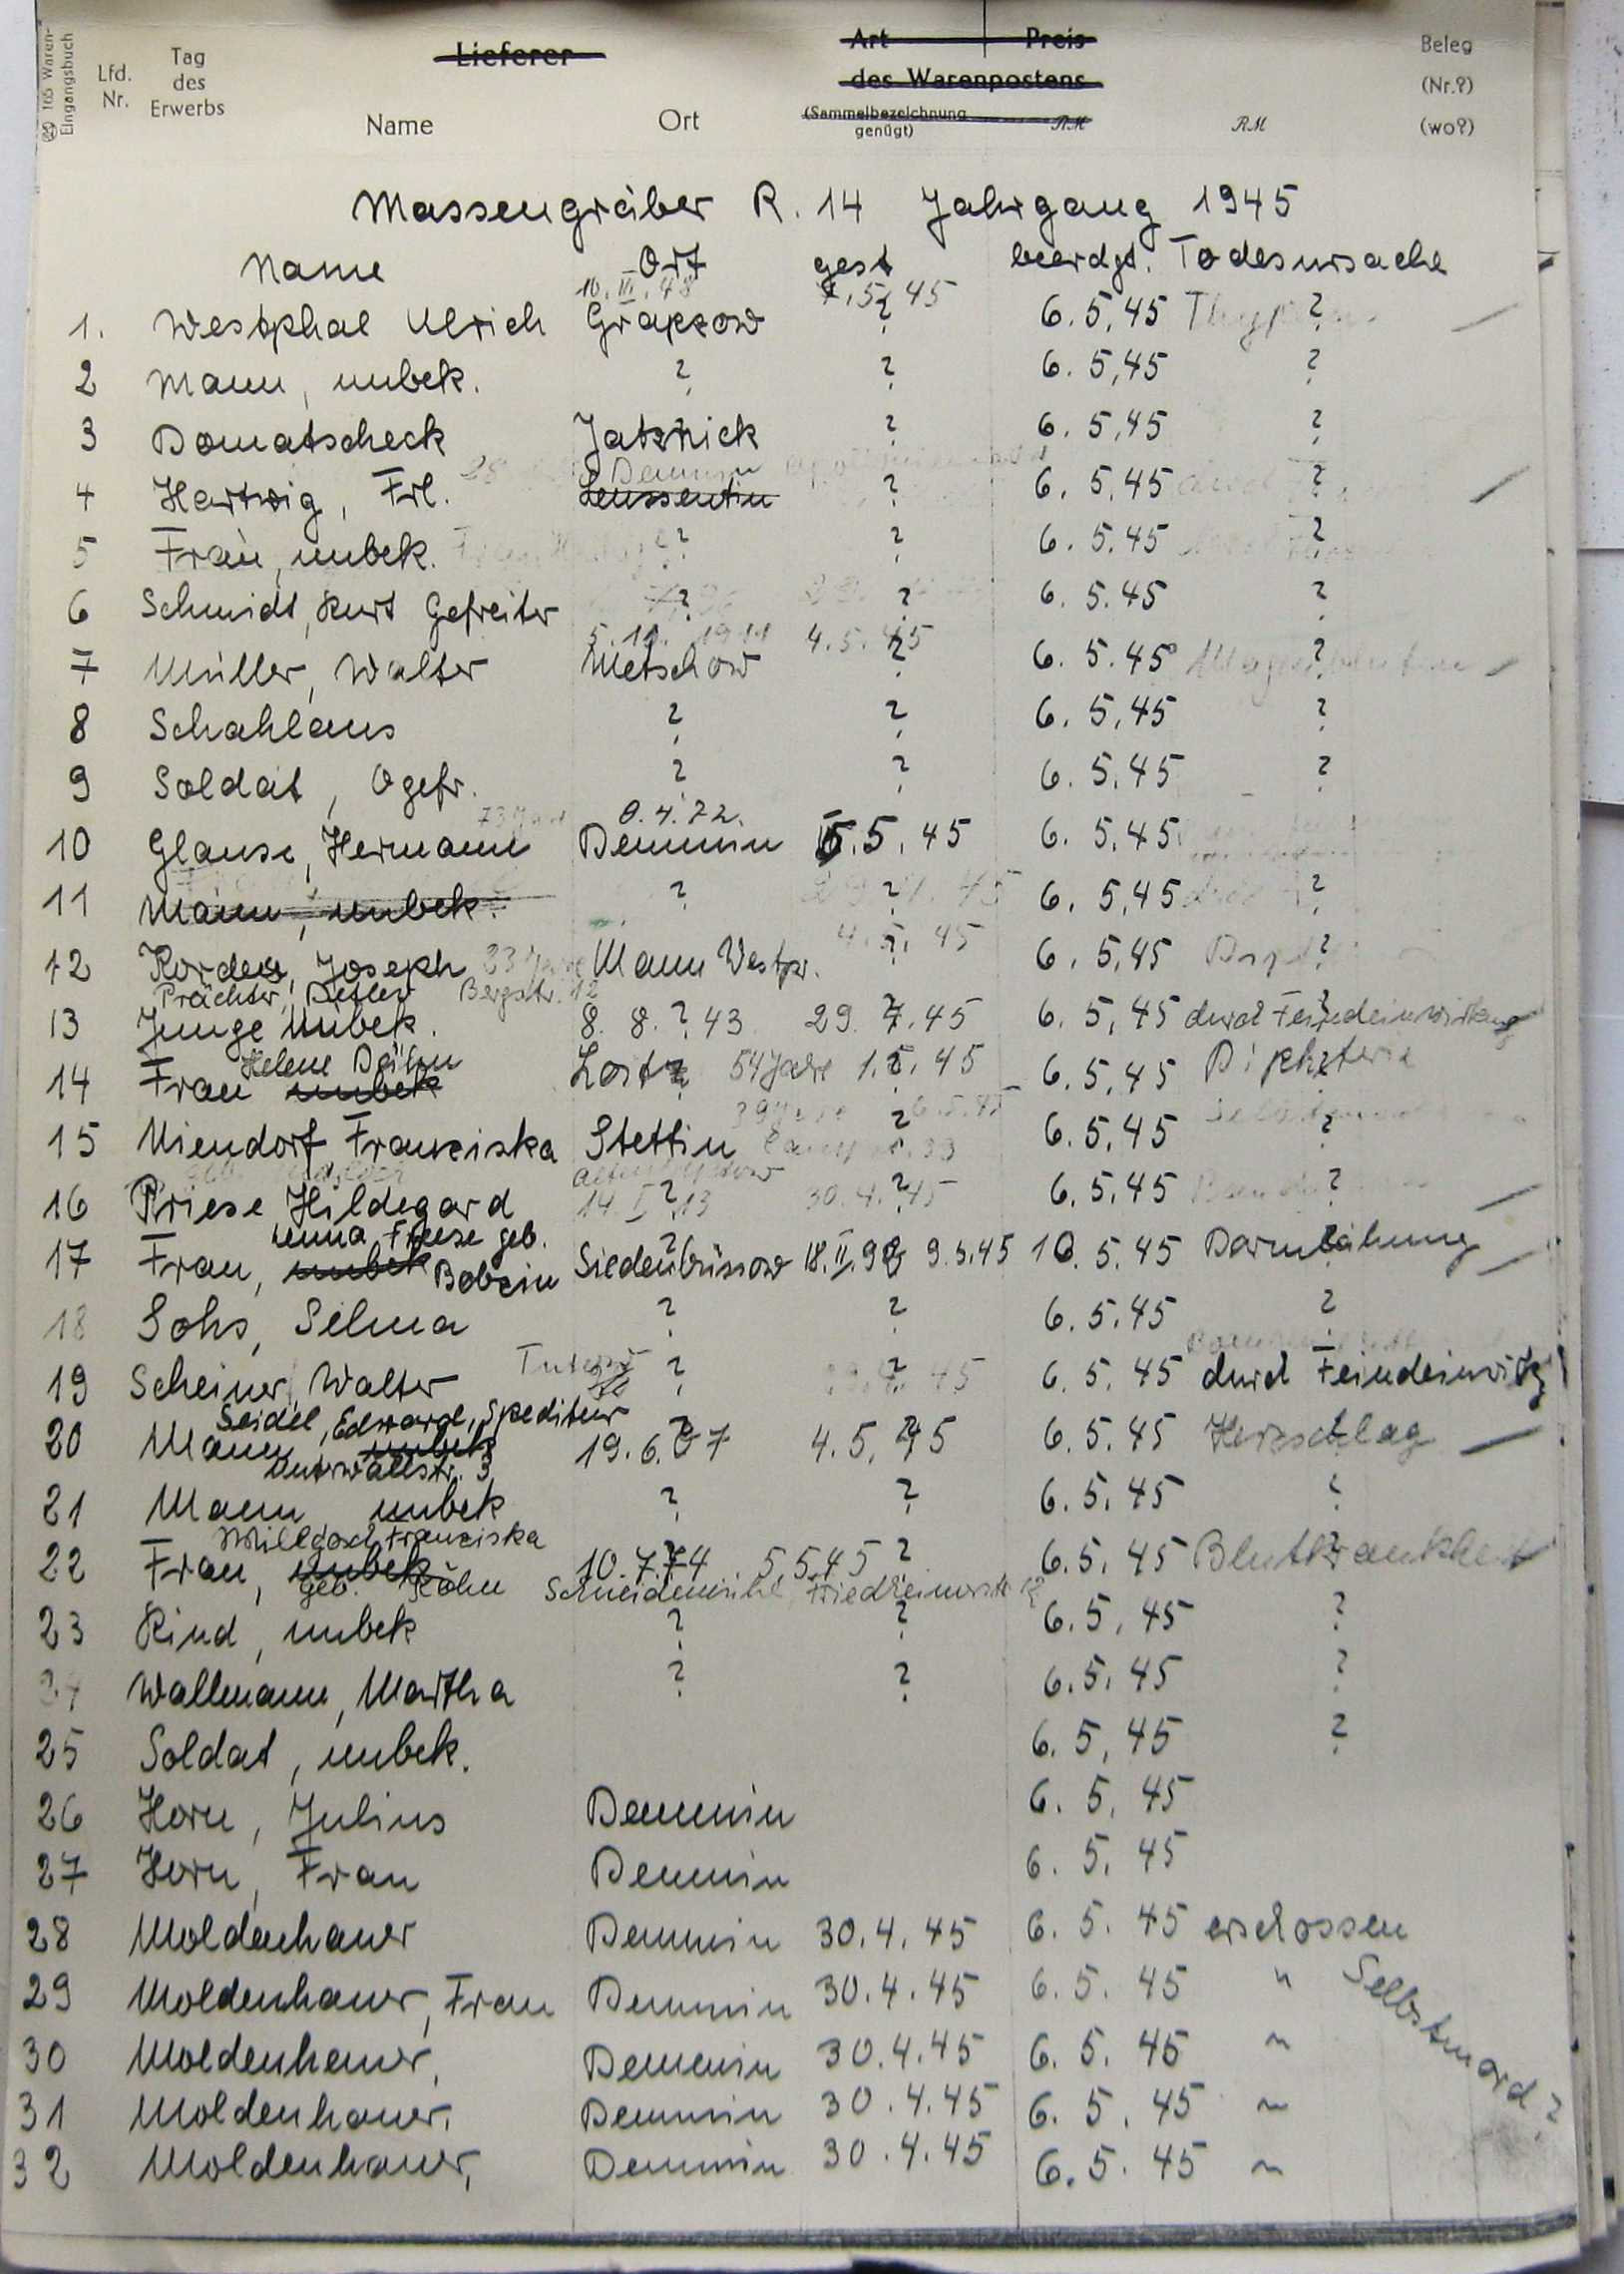 165 Waren-Eingangsbuch
Lfd. Nr. Tag des Erwerbs Lieferer Name Ort Art Preis des Warenpostens (Sammelbezeichnung genügt) RM RM Beleg (Nr.?) (wo?)
Massengräber R. 14 Jahrgang 1945
Name Ort gest beerdgt. Todesursache
10. III. 48 5. 45
1. Westphal Ulrich Grapzow ? 6. 5. 45 ?
2 Mann, unbek. ? ? 6. 5. 45 ?
3 Domatscheck Jatznick ? 6. 5. 45 ?
Demmin
4 Hartwig, Frl. Leussentin ? 6. 5. 45 ?
5 Frau, unbek. ? ? 6. 5. 45 ?
6 Schmidt, Kurt Gefreiter ? ? 6. 5. 45 ?
5. 11. 4. 5. 45
7 Müller, Walter Metschow ? 6. 5. 45 ?
8 Schahlaus ? ? 6. 5. 45 ?
9 Soldat, Ogefr. ? ? 6. 5. 45 ?
73 Jahre 0. 4. 72.
10 Glause, Hermann Demmin 5. 5. 45 6. 5. 45
11 Mann, unbek. ? ? 6. 5. 45 ?
4. 5. 45
12 Joseph 23 Jahre Mann Westpr. ? 6. 5. 45 ?
Prächter, Detlev Bergstr. 12
13 Junge Unbek. 8. 8. ? 43 29. 4. 45 6. 5. 45 durch Feindeinwirkung
Helene
14 Frau unbek 54 Jahre 1. 5. 45 6. 5. 45 Diphterie
39 Jahre 6. 5. 45
15 Niendorf Franziska Stettin ? 6. 5. 45 ?
16 Priese Hildegard 14. I. ? 13 30. 4. ? 45 6. 5. 45 ?
Freese geb.
17 Frau, unbek Bobzin Siedenbrüssow 18. II. 98 9. 5. 45 10. 5. 45 Darmlähmung
18 Sohs, Selma ? ? 6. 5. 45 ?
19 Scheiner, Walter Tutow ? ? 45 6. 5. 45 durch Feindeinwirkg
Seidel, Edward, Spediteur
20 Mann unbek 19. 6. 07 4. 5. 45 6. 5. 45 Herzschlag
3
21 Mann unbek ? ? 6. 5. 45 ?
Franziska
22 Frau, unbek 10. 7. 74 5. 5. 45 ? 6. 5. 45 Blutkrankheit
geb. Köhn Schneidemühl, 12
23 Kind, unbek ? ? 6. 5. 45 ?
24 Wallmann, Martha ? ? 6. 5. 45 ?
25 Soldat, unbek. 6. 5. 45 ?
26 Horn, Julius Demmin 6. 5. 45
27 Horn, Frau Demmin 6. 5. 45
28 Moldenhauer Demmin 30. 4. 45 6. 5. 45 erschossen
29 Moldenhauer, Frau Demmin 30. 4. 45 6. 5. 45 " Selbstmord ?
30 Moldenhauer, Demmin 30. 4. 45 6. 5. 45 "
31 Moldenhauer, Demmin 30. 4. 45 6. 5. 45 "
32 Moldenhauer, Demmin 30. 4. 45 6. 5. 45 "